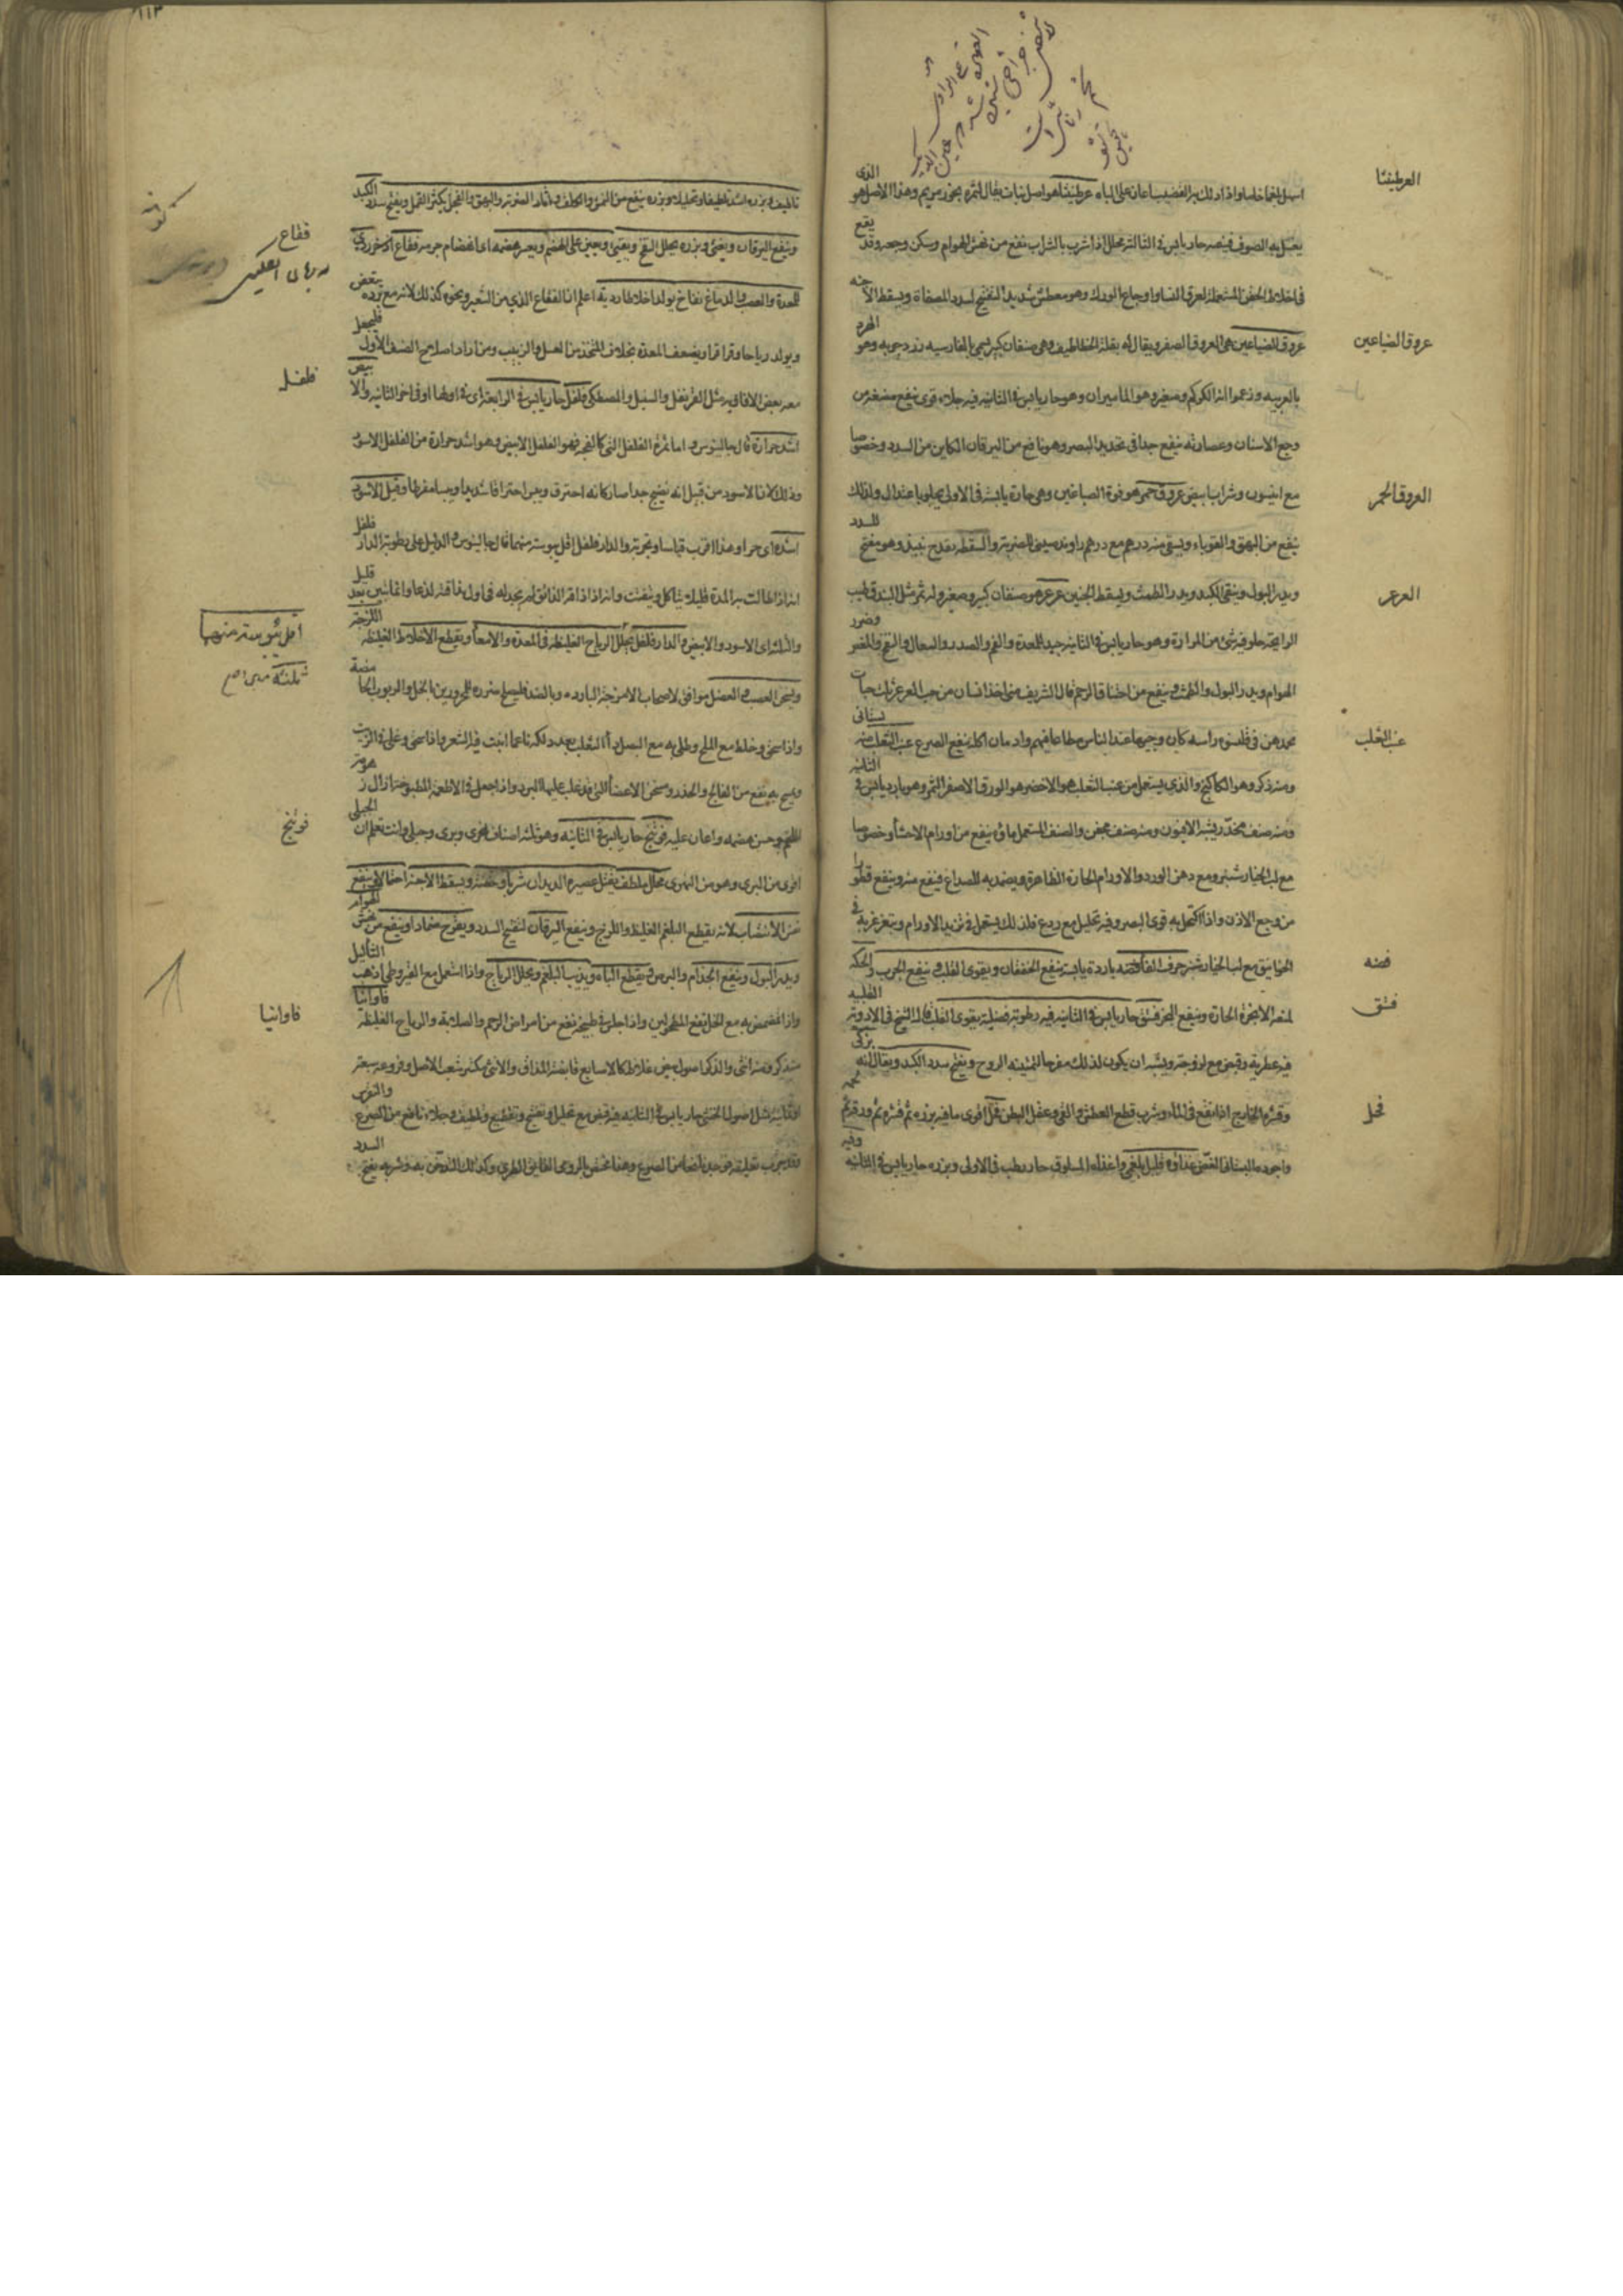 العرطنيثا
اسهل بلغما خاما واذا دلك به القضيب اعان على الباه عرطنيثا هو اصل نبات يقال لثمره بخور مريم وهذا الاصل هو الذى
يغسل به الصوف فينقيه حار يابس فى الثالثة محلل اذا شرب بالشراب نفع من نهش الهوام وسكن وجعه وقد يقع
فى اخلاط الحقن المستعملة لعرق النسا واوجاع الورك وهو معطس شديد التفتيح لسدد المصفاة ويسقط الاجنه
عروق الصباغين
عروق الصباغين هى العروق الصفر ويقال له بقلة الخطاطيف وهى صنفان كبير يسمى بالفارسيه زرد چوبه وهو الهرد
بالعربيه وزعموا انه الكركم وصغير وهو الماميران وهو حار يابس فى الثانيه فيه جلاء قوى ينفع مضغه من
وجع الاسنان وعصارته ينفع جدا فى تحديد البصر وهو نافع من اليرقان الكاين من السدد وخصوصا
العروق الحمر
مع انيسون وشراب ابيض عروق حمر هو فوة الصباغين وهى حارة يابسة فى الاولى يجلو باعتدال ولذلك
ينفع من البهق والقوباء ويسقى منه درهم مع درهم راوند صينى للضربة والسقطة بقدح نبيذ وهو مفتح للسدد
العرعر
ويدر البول وينقى الكبد ويدر الطمث ويسقط الجنين عرعر هو صنفان كبير وصغير وله ثمر مثل البندق طيب
الرايحة حلو فيه شئ من المرارة وهو حار يابس فى الثانيه جيد للمعدة والفم والصدر والسعال والنفخ والمغص وضرر
الهوام ويدر البول والطمث وينفع من اختناق الرحم قال الشريف متى اخذ انسان من حب العرعر ثلث حبات
عنب الثعلب
فى قلنسوة راسه كان وجيها عند الناس مطاعا فيهم وادمان اكله ينفع الصرع عنب الثعلب منه بستانى
ومنه ذكر وهو الكاكنج والذى يستعمل من عنب الثعلب هو الاخضر هو الورق الاصفر الثمر وهو بارد يابس فى الثانيه
ومنه صنف مخدر يشبه الافيون ومنه صنف مجفف والصنف المستعمل ماؤه ينفع من اورام الاحشا وخصوصا
مع لب الخيار شنبر ومع دهن الورد والاورام الحارة الظاهرة ويضمد به للصداع فينفع منه وينفع قطورا
من وجع الاذن واذا اكتحل به قوى البصر وفيه تحليل مع ردع فلذلك يستعمل فى تزيد الاورام ويتغرغر به فى
فضه
الخوانيق مع لب الخيار شنبر حرف الفا فضه باردة يابسة ينفع الخفقان ويقوى القلب وينفع الجرب والحكه
فستق
لمنعه الابخرة الحارة وينفع البخر فستق حار يابس فى الثانيه فيه رطوبة فضلية يقوى القلب قال الشيخ فى الادوية القلبيه
فيه عطرية وقبض مع لزوجة ويشبه ان يكون لذلك مفرحا لتمتينه الروح ويفتح سدد الكبد ويقال انه
فجل
وقشره الخارج اذا نقع فى الماء وشرب قطع العطش والقى وعقل البطن فجل اقوى ما فيه بزره ثم قشره ثم ورقه ثم لحمه
واجوده البستانى الغض غذاؤه قليل بلغمى واغذاه المسلوق حار رطب فى الاولى وبزره حار يابس فى الثانيه وفيه
١١٣
تلطيف وبزره اشد تلطيفا وتحليلا وبزره ينفع من النمش والكلف واثار الضربة والبهق والفجل يكثر القمل ويفتح سدد الكبد
فقاع
وينفع اليرقان ويغثى وبزره يحلل النفخ ويعين على الهضم ويعسر هضمه اى انهضام جرمه فقاع
للمعدة والعصب والدماغ نفاخ يولد اخلاطا ردية اعلم ان الفقاع الذى من الشعير ونحوه كذلك لانه مع برده
ويولد رياحا وقراقر ويضعف المعدة بخلاف المتخذ من العسل والزبيب ومن اراد اصلاح الصنف الاول فليجعل
فلفل
معه بعض الافاويه مثل القرنفل والسنبل والمصطكى فلفل حار يابس فى الرابعة اى فى اولها او فى اخر الثانيه والابيض
اشد حرارة قال جالينوس واما ثمرة الفلفل التى كالفجه فهو الفلفل الابيض وهو اشد حرارة من الفلفل الاسود
وذلك لان الاسود من قبل انه نضج جدا صار كانه احترق ويبس احتراقا شديدا ويبسا مفرطا وقيل الاسود
اشد اى حرا وهذا اقرب قياسا وتجربة والدار فلفل اقل يبوسة منهما قال جالينوس والدليل على رطوبة الدار فلفل
اقل يبوسة منهما
انه اذا طالت به المدة قليلا يتاكل ويتفتت وانه اذا ذاقه الذائق لم يجد له فى اول مذاقته لذعا وانما يتبين بعد قليل
والثلثة اى الاسود والابيض والدار فلفل يحلل الرياح الغليظة فى المعدة والامعا ويقطع الاخلاط الغليظة اللزجة
ويسخن العصب والعضل موافق لاصحاب الامزجة البارده وبالضد فليصلح ضرره للمحرورين بالخل والربوب الحامضة
واذا سحق وخلط مع الملح وطلى به مع البصل داء الثعلب بعد دلكه ناعما انبت فيه الشعر واذا سحق وغلى فى الزيت
وتمرخ به نفع من الفالج والخدر وسخن الاعضا التى قد غلب عليها البرد واذا جعل فى الاطعمة المطبوخة ازال زهومة
فوتنج
اللحم وحسن هضمه واعان عليه فوتنج حار يابس فى الثانيه وهو ثلثة اصناف نهرى وبرى وجبلى وانت تعلم ان الجبلى
اقوى من البرى وهو من النهرى محلل ملطف يقتل عصيره الديدان شربا وحقنة ويسقط الاجنة احتمالا وينفع
من الانتصاب لانه يقطع البلغم الغليظ واللزج وينفع اليرقان لتفتيح السدد ويقرح ضمادا وينفع من نهش الهوام
ويدر البول وينفع الجذام والبرص ويقطع الباه ويذيب البلغم ويحلل الرياح واذا استعمل مع القيروطى اذهب الثآليل
فاوانيا
واذا تمضمض به مع الخل نفع واذا جلس فى طبيخه نفع من امراض الرحم والصلابة والرياح الغليظة فاوانيا
منه ذكر ومنه انثى والذكر اصوله بيض غلاظ كالاصابع قابضة المذاق والانثى يكثر شعب الاصل وفروعه سبعة
او ثمانية مثل اصول الخنثى حار يابس فى الثانيه فيه قبض مع تحليل وتفتيح وتقطيع وتلطيف وجلاء نافع من الصرع والنقرس
وقد جرب تعليقه فوجد نافعا من الصرع وهذا مختص بالرومى الطرى وكذلك التدخين به وشربه يفتح السدد